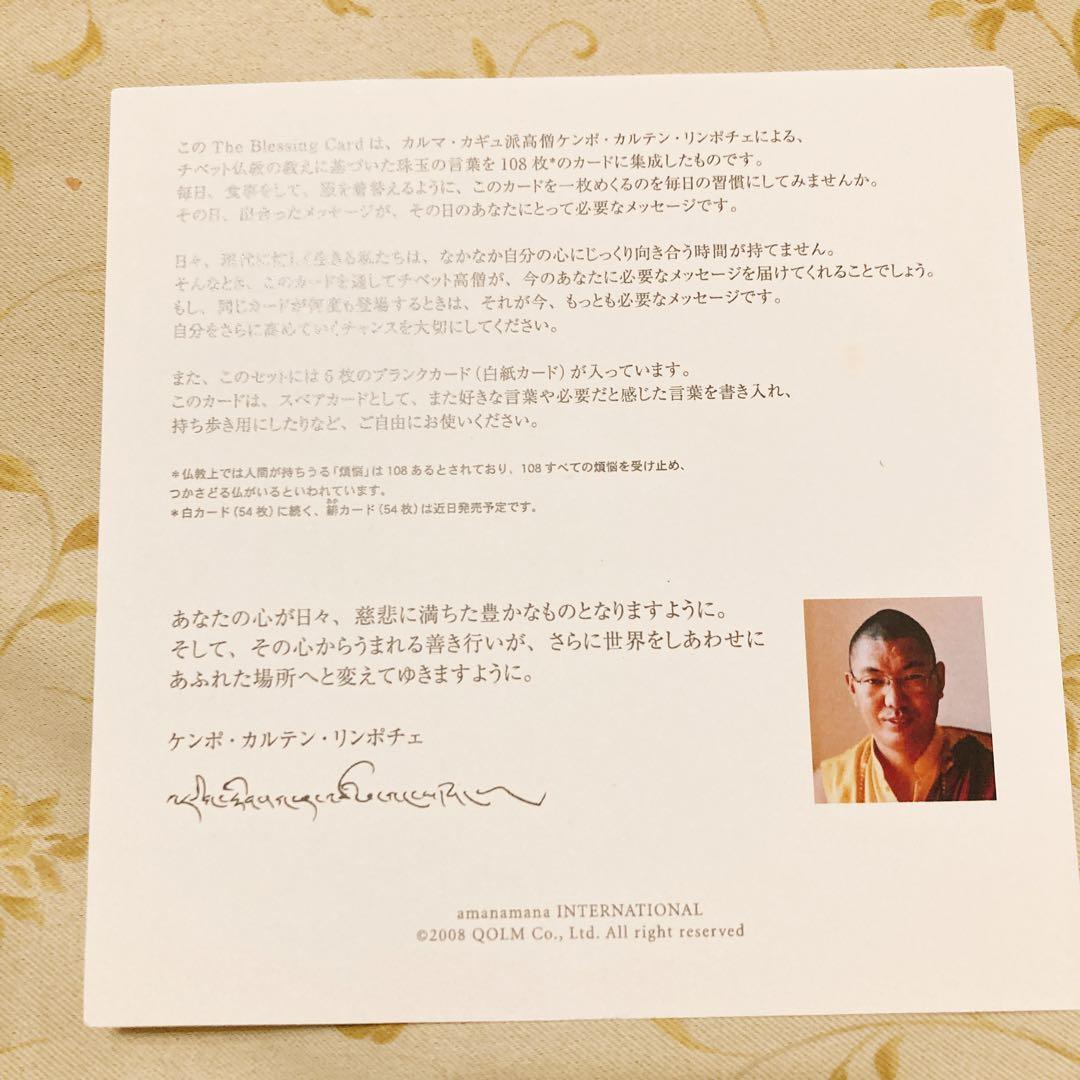 この The Blessing Card は、カルマ・カギュ派高僧ケンポ・カルテン・リンポチェによる、
チベット仏教の教えに基づいた珠玉の言葉を108枚*のカードに集成したものです。
毎日、食事をして、服を着替えるように、このカードを一枚めくるのを毎日の習慣にしてみませんか。
その日、出合ったメッセージが、その日のあなたにとって必要なメッセージです。
日々、現代に忙しく生きる私たちは、なかなか自分の心にじっくり向き合う時間が持てません。
そんなとき、このカードを通してチベット高僧が、今のあなたに必要なメッセージを届けてくれることでしょう。
もし、同じカードが何度も登場するときは、それが今、もっとも必要なメッセージです。
自分をさらに高めていくチャンスを大切にしてください。
また、このセットには6枚のブランクカード（白紙カード）が入っています。
このカードは、スペアカードとして、また好きな言葉や必要だと感じた言葉を書き入れ、
持ち歩き用にしたりなど、ご自由にお使いください。
＊仏教上では人間が持ちうる「煩悩」は108あるとされており、108すべての煩悩を受け止め、
つかさどる仏がいるといわれています。
＊白カード（54枚）に続く、緋カード（54枚）は近日発売予定です。
あなたの心が日々、慈悲に満ちた豊かなものとなりますように。
そして、その心からうまれる善き行いが、さらに世界をしあわせに
あふれた場所へと変えてゆきますように。
ケンポ・カルテン・リンポチェ
amanamana INTERNATIONAL
©2008 QOLM Co., Ltd. All right reserved